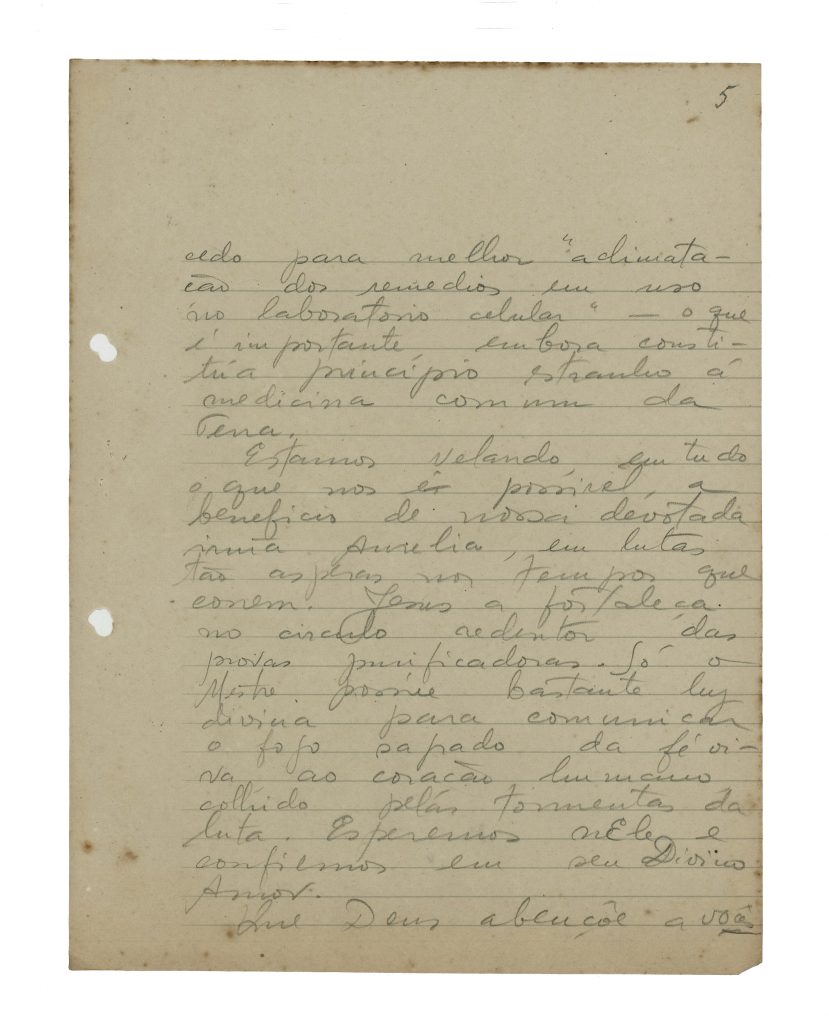 5
cedo para melhor "aclimata-
ção dos remedios em uso
no laboratorio celular" — o que
é importante embora consti-
túa princípio estranho á
medicina comum da
Terra.
Estamos velando, em tudo
o que nos é possível, a
beneficio de nossa devotada
irmã Aurelia, em lutas
tão asperas nos tempos que
correm. Jesus a fortaleça
no circulo redentor das
provas purificadoras. Só o
Mestre possúe bastante luz
divina para comunicar
o fogo sagrado da fé vi-
va ao coração humano
colhido pelas tormentas da
luta. Esperemos nEle e
confiemos em seu Divino
Amor.
Que Deus abençôe a vocês